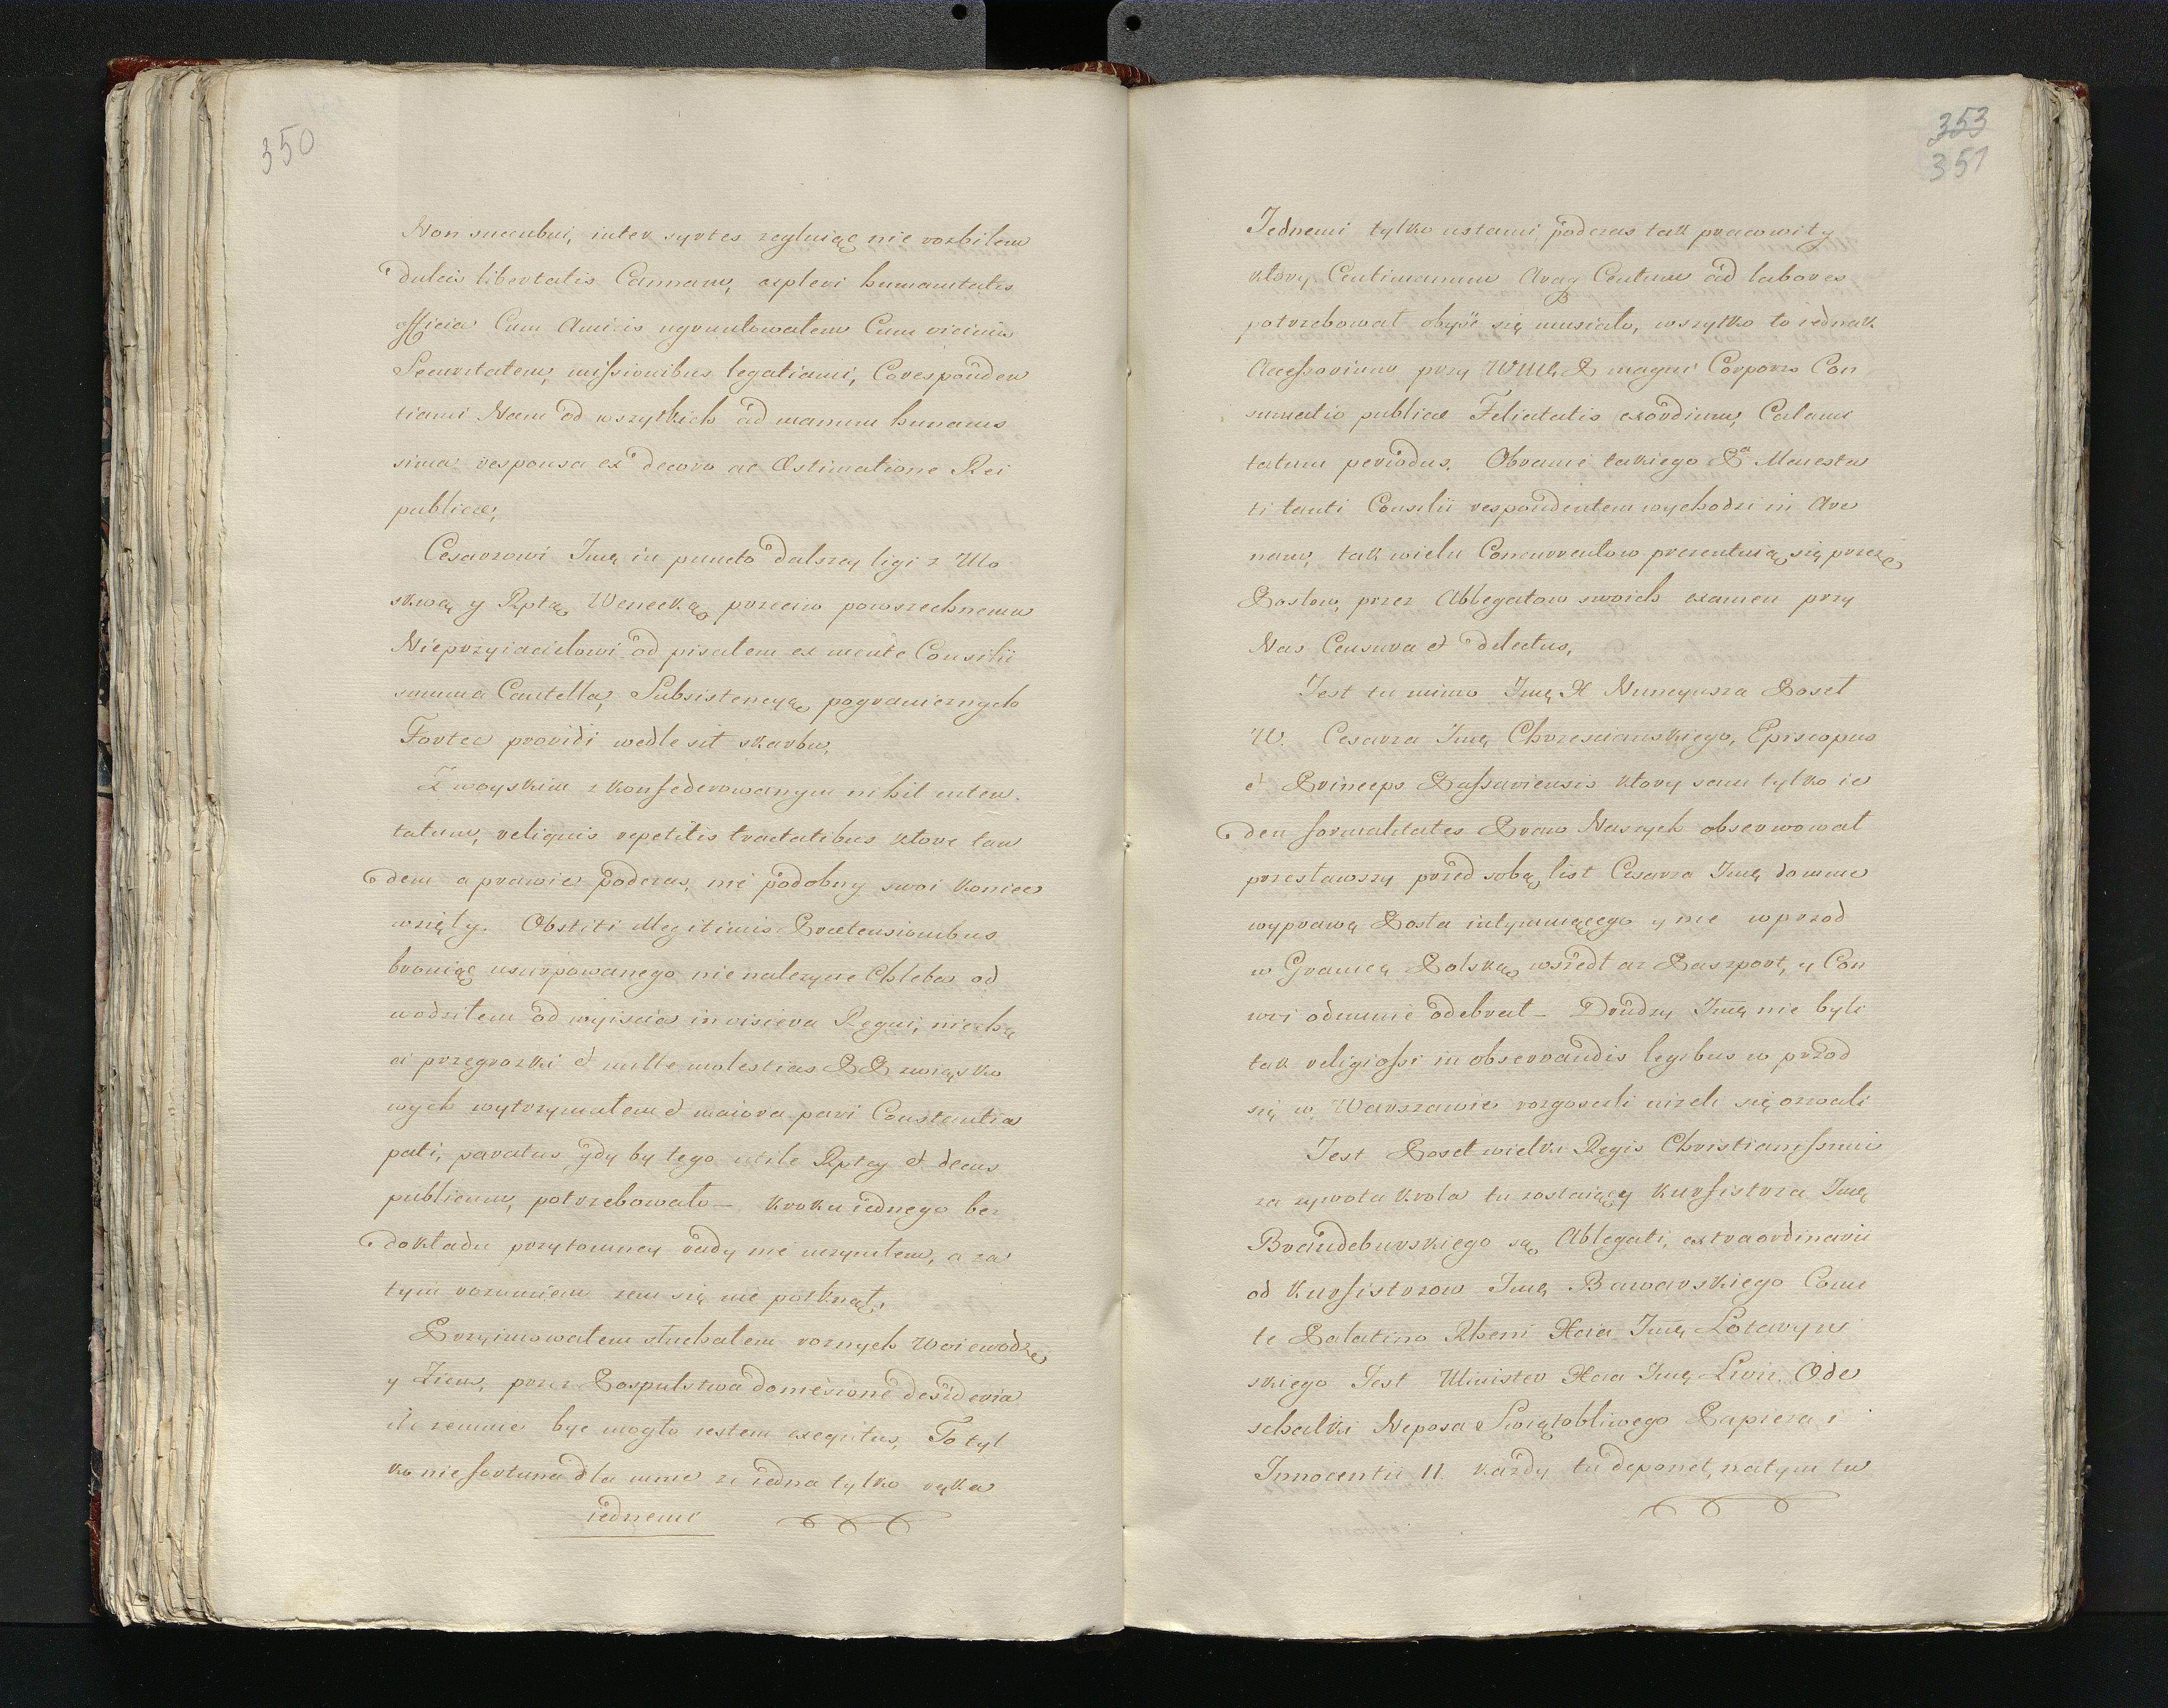 350
Non succubui, inter syrtes zegluiąc nie rozbilem
dulcis libertatis Cannam, explevi humanitatis
officia Cum Amicis ugruntowalem Cum vicinis
Securitatem, missionibus legatiami, Coresponden
tiami Nam od wszytkich ad manum humanis
sima responsa ex decoro ac Æstimatione Rei
publicæ,
Cesarzowi Jmę in puncto dalszey ligi z Mo
skwą y Rptą Wenecką przeciw powszechnemu
Nieprzyiacielowi od pisałem ex mente Consilii
summa Cautella, Subsistencyą pogranicznych
Fortec providi wedle sił skarbu,
Z woyskiem zkonfederowanym nihil inten
tatum, reliquis repetitis tractatibus ktore tan
dem a prawie podczas, nie podobny swoi koniec
wzięły. Obstiti illegitimis Prætensionibus
broniąc usurpowanego nie nalezycie Chleba od
wodziłem od wyiscia in viscera Regni, niechę
ci przegrozki et mille molestias PP związko
wych wytrzymałem et maiora pari Constantia
pati, paratus gdy by tego utile Rptey et decus
publicum, potrzebowało – kroku iednego bez
dokładu przytomney rady nie uczyniłem, a za
tym rozumiem zem się nie potknął,
Przyimowałem słuchałem roznych Woiewodztw
y Ziem, przez Pospulstwa doniesione desideria
ile zemnie byc mogło iestem exequtus, To tyl
ko nie fortuna dla mnie ze iedna tylko ręka
iednemi
353
351
Iednemi tylko ustami podczas tak pracowity
ktory Centimanum Aray Centum ad labores
potrzebował obyść się musiało, wszytko to iednak
Accessorium przy WMę P magni Corporis Con
sumatio publicæ Felicitatis exordium, Calami
tatum periodus. Obranie takiego Pa Maiesta
ti tanti Consilii respondentem wychodzi in Are
nam, tak wielu Concurrentow prezentuią się przez
Posłow, przez Ablegatow swoich examen przy
Nas Censura et delectus,
Jest tu mimo Jmę X Nuncyusza Poseł
W. Cesarza Jmę Chrzescianskiego, Episcopus
et Princeps Passaviensis ktory sam tylko ie
den formalitates Praw Naszych obserwował
przesławszy przed sobą list Cesarza Jmę do mnie
wyprawę Posła intymuiącego y nie wprzod
w Granicę Polską wszedł az Paszport, y Con
voi odemnie odebrał – Drudzy Jmę nie byli
tak religiosi in observandis legibus w przod
się w Warszawie rozgoscili nizeli się ozwali
Jest Poseł wielki Regis Christianissimi
za zywota krola tu zostaiący Kurfistrza Jmę
Brandeburskiego są Ablegati, extraordinarii
od Kurfistrzow Jmę Bawarskiego Comi
te Palatino Rheni Xcia Jmę Lotaryn
skiego Jest Minister Xcia Jmę Livii Ode
schalki Neposa Swiątobliwego Papieza i
Innocentii 11 kazdy tu deponet, na tym tu